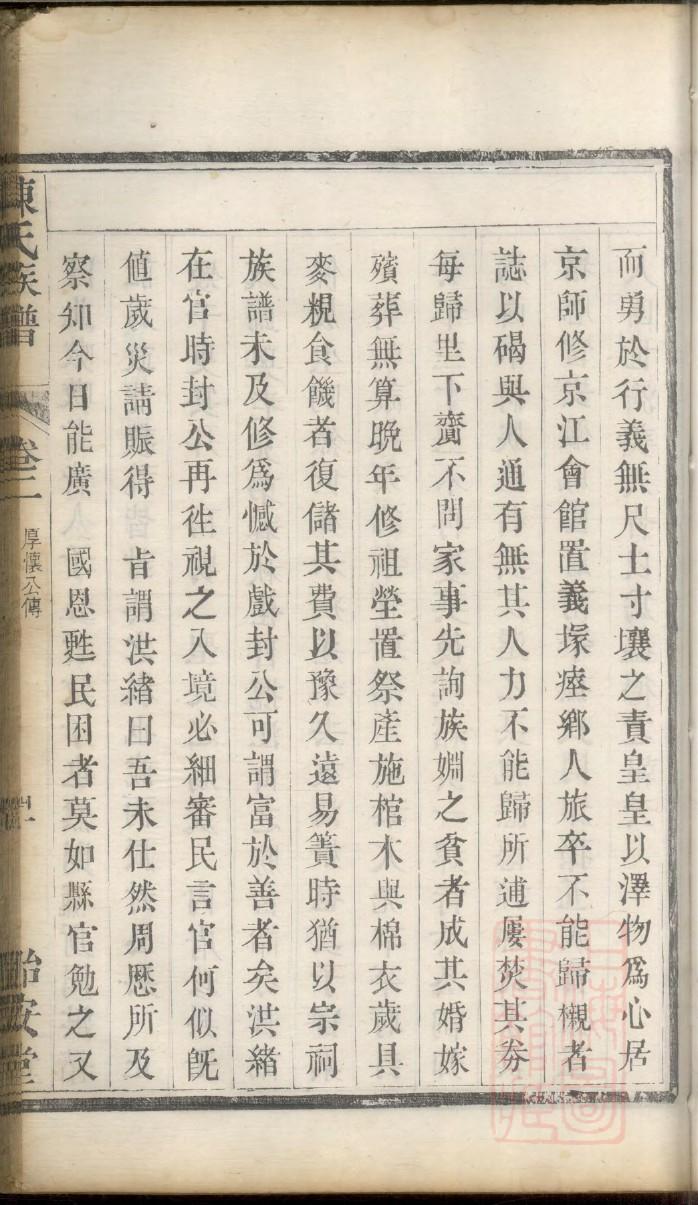 而勇於行義無尺土寸壤之責皇皇以澤物爲心居
京師修京江會館置義塚瘞鄉人旅卒不能歸櫬者
誌以碣與人通有無其人力不能歸所逋屢焚其券
每歸里下齎不問家事先詢族婣之貧者成其婚嫁
殯葬無算晚年修祖塋置祭產施棺木與棉衣歲具
麥粯食饑者復儲其費以豫久遠易簀時猶以宗祠
族譜未及修爲憾於戲封公可謂富於善者矣洪緒
在官時封公再徃視之入境必細審民言官何似旣
值歲災請賑得 旨謂洪緒曰吾未仕然周厯所及
察知今日能廣 國恩甦民困者莫如縣官勉之又
陳氏族譜 卷二 厚懷公傳 四十 怡安堂